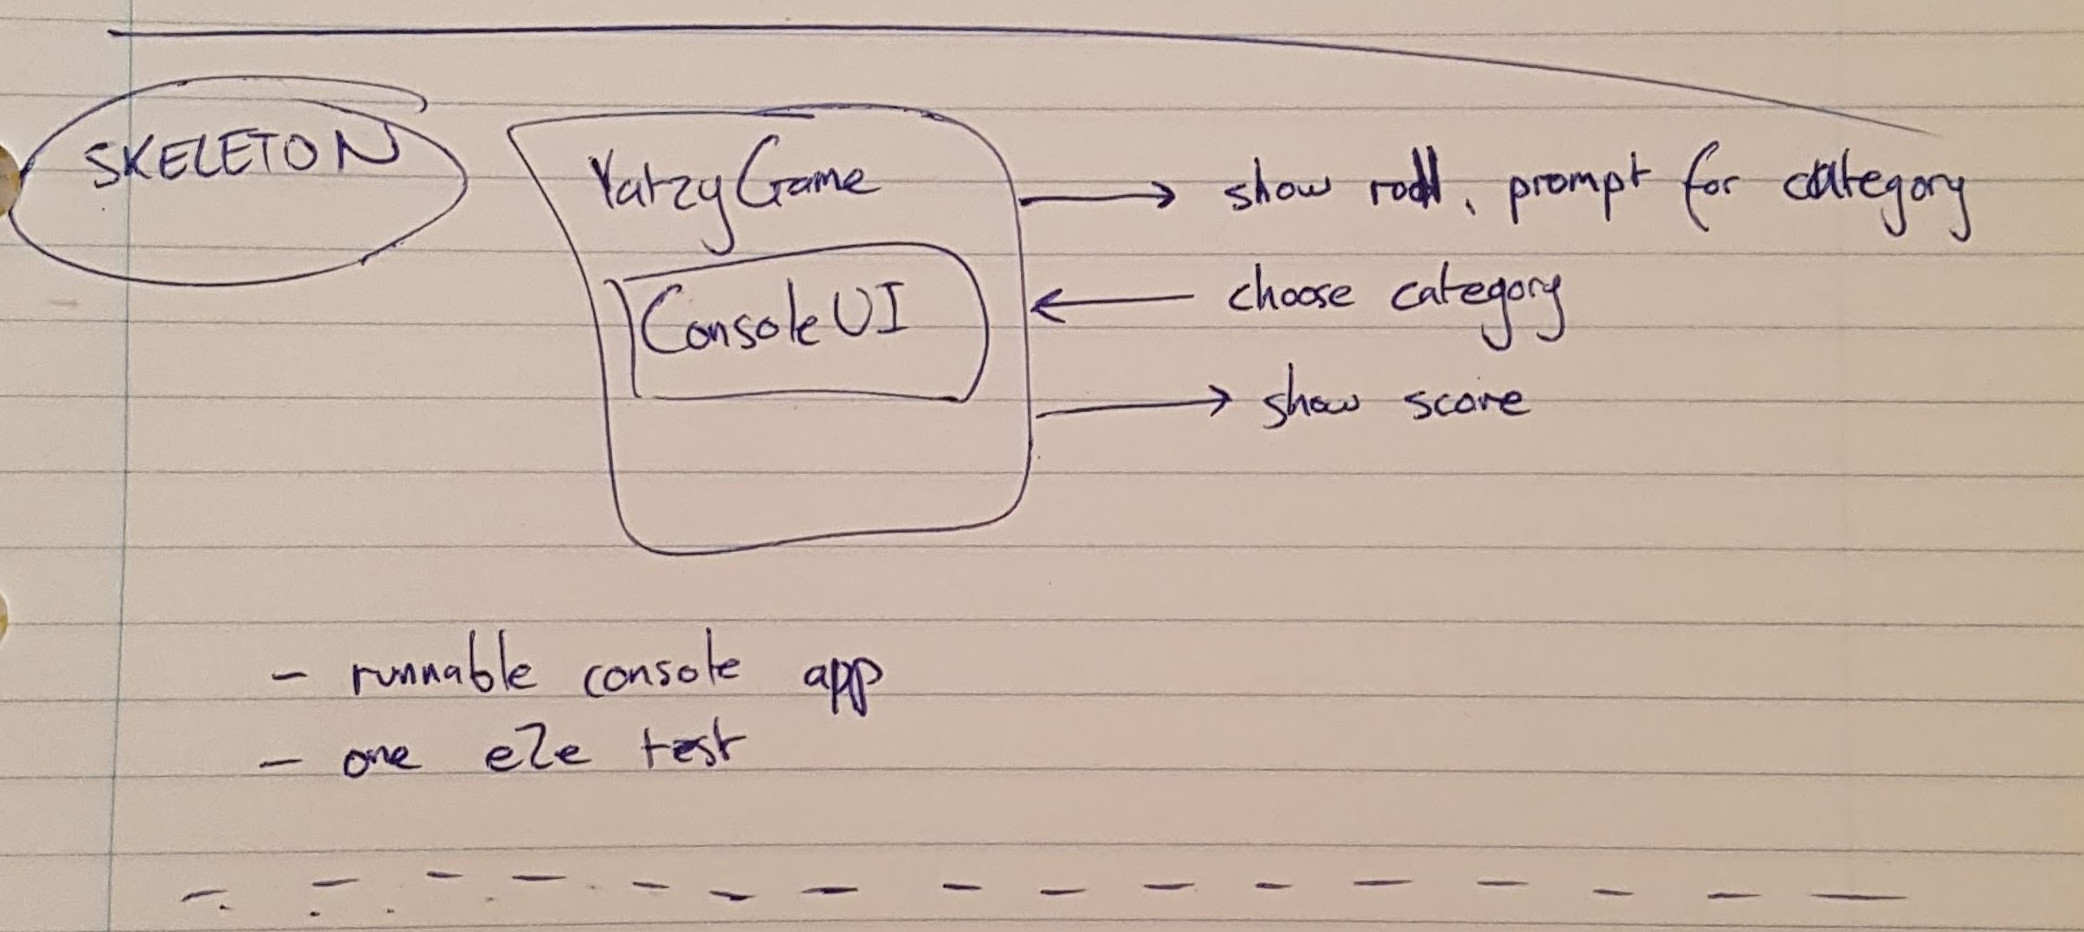 SKELETON
YatzyGame
ConsoleUI
→ show roll, prompt for category
← choose category
→ show score
- runnable console app
- one e2e test